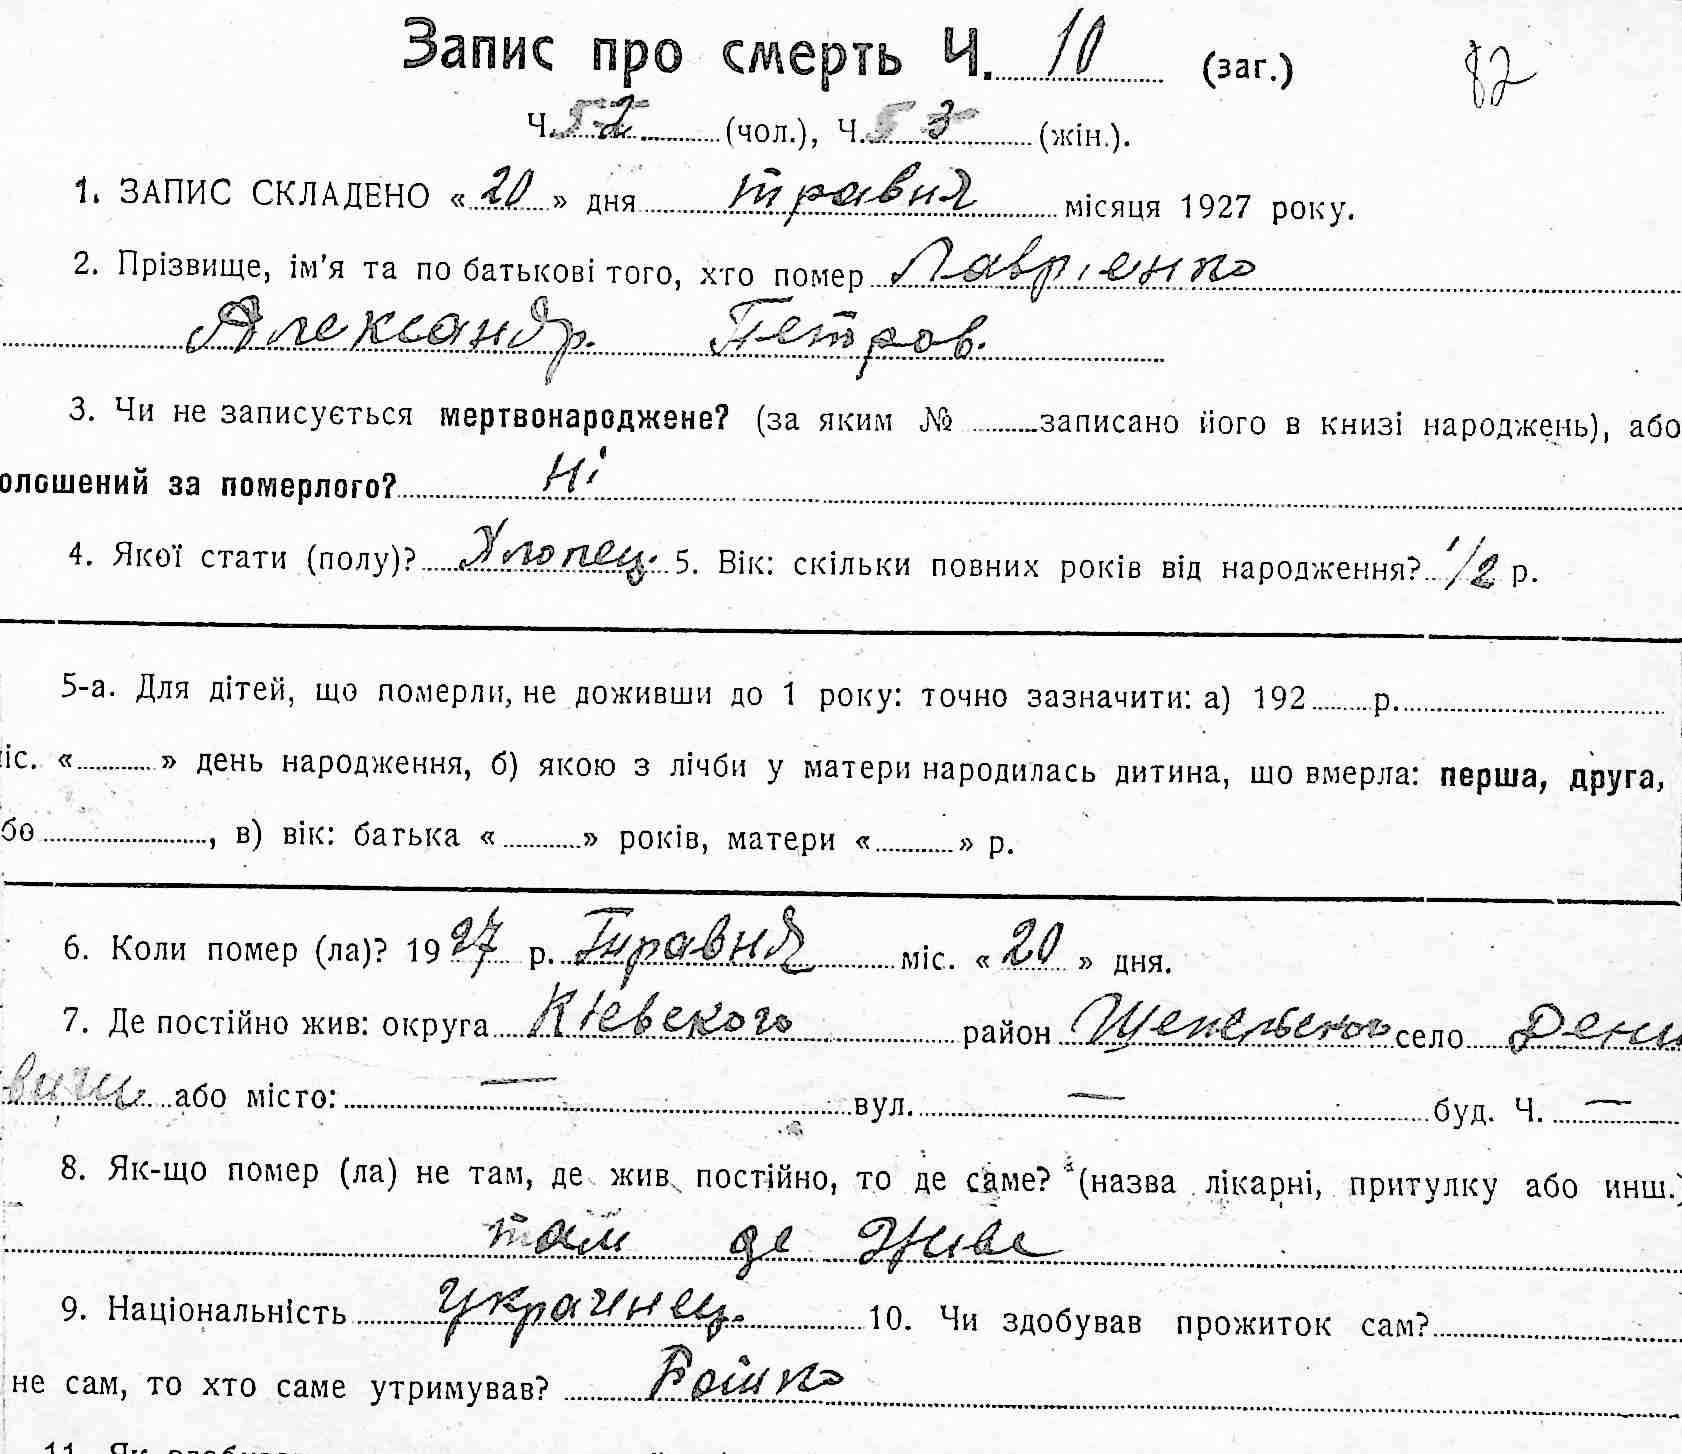 Запис про смерть Ч. 10 (заг.) 82
Ч. 52 (чол.), Ч. 53 (жін.).
1. ЗАПИС СКЛАДЕНО « 20 » дня травня місяця 1927 року.
2. Прізвище, ім'я та по батькові того, хто помер Лаврієнко
Александр. Петров.
3. Чи не записується мертвонароджене? (за яким № записано його в книзі народжень), або
олошений за померлого? Ні
4. Якої стати (полу)? Хлопец. 5. Вік: скільки повних років від народження? 1/2 р.
5-а. Для дітей, що померли, не доживши до 1 року: точно зазначити: а) 192 р.
іс. « » день народження, б) якою з лічби у матери народилась дитина, що вмерла: перша, друга,
бо , в) вік: батька « » років, матери « » р.
6. Коли помер (ла)? 1927 р. Травня міс. « 20 » дня.
7. Де постійно жив: округа Кіевского район село Дени
вичи або місто: — вул. — буд. Ч. —
8. Як-що помер (ла) не там, де жив постійно, то де саме? (назва лікарні, притулку або инш.)
там де живе
9. Національність Украинец. 10. Чи здобував прожиток сам?
не сам, то хто саме утримував? Батько